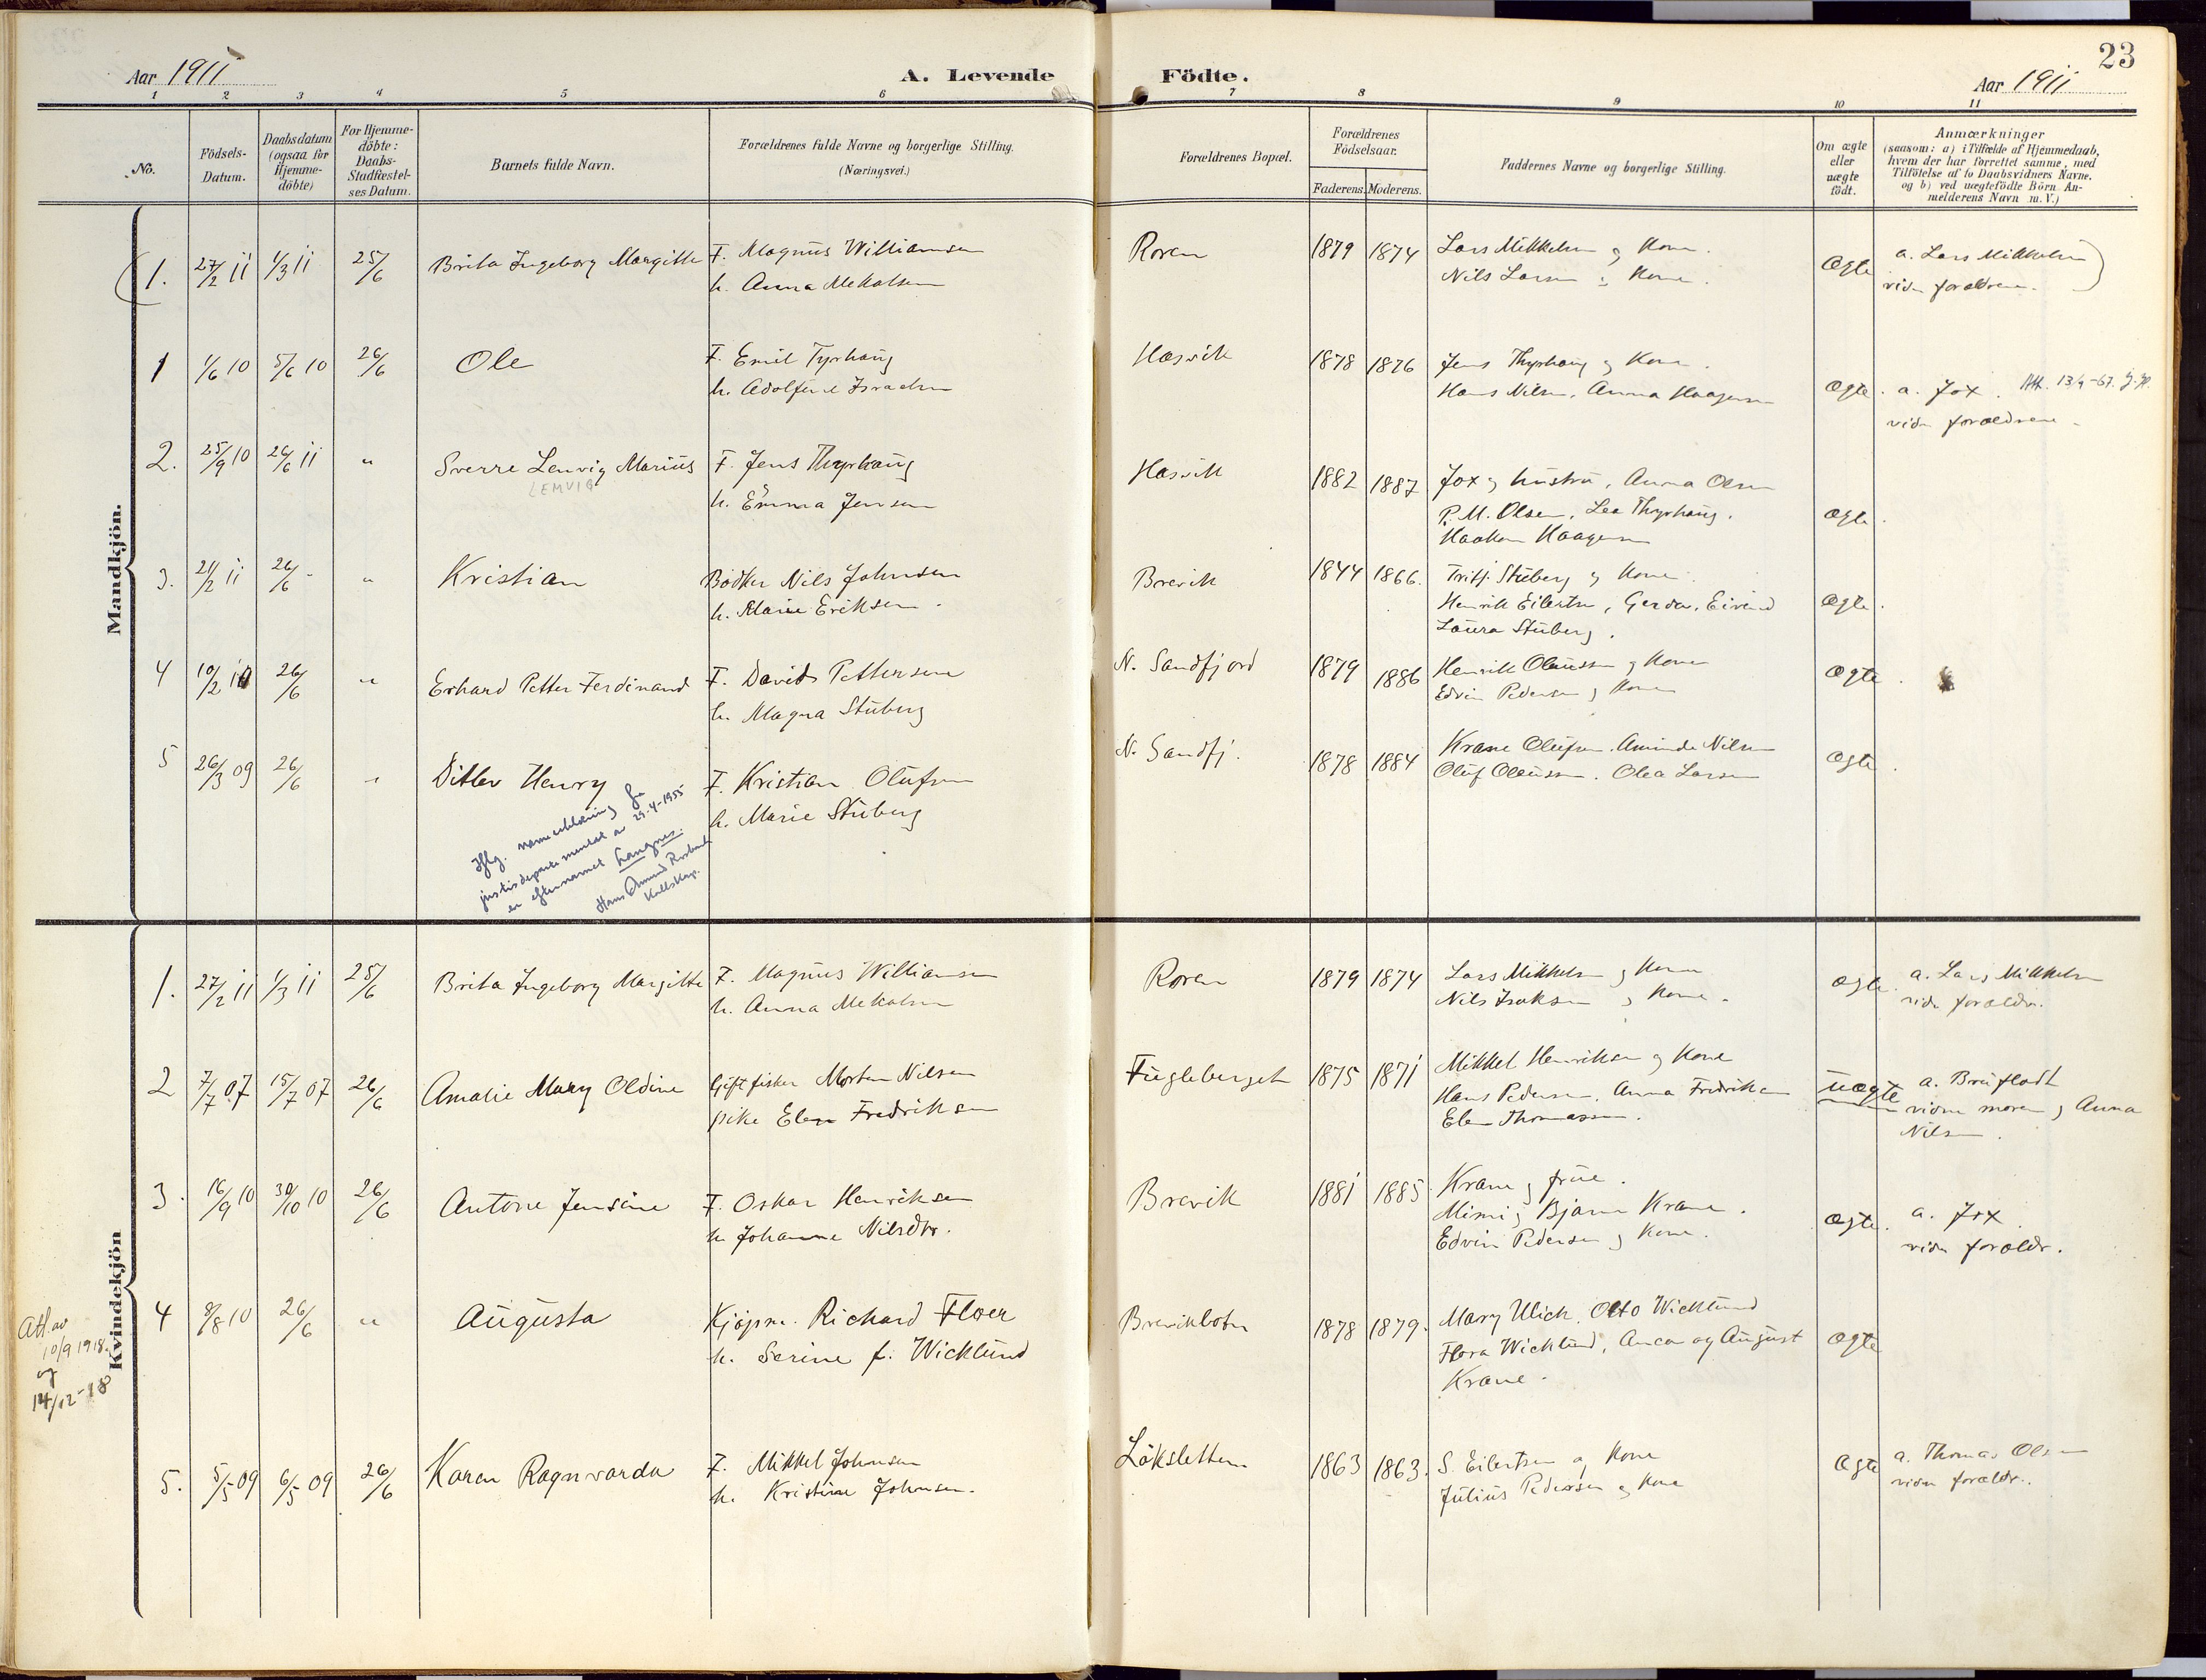 23
Aar 1911
A. Levende Födte.
Aar 1911
1 2 3 4 5 6 7 8 9 10 11
No.
Födsels-Datum.
Daabsdatum (ogsaa for Hjemme-döbte)
For Hjemme-döbte: Daabs-Stadfæstel-ses Datum.
Barnets fulde Navn.
Forældrenes fulde Navne og borgerlige Stilling. (Næringsvei.)
Forældrenes Bopæl.
Forældrenes Födselsaar.
Faderens. Moderens.
Faddernes Navne og borgerlige Stilling.
Om ægte eller uægte födt.
Anmærkninger
(saasom: a) i Tilfælde af Hjemmedaab,
hvem der har forrettet samme, med
Tilföielse af to Daabsvidners Navne.
og b) ved uægtefödte Börn An-
melderens Navn m. V.)
Mandkjön.
(1. 27/2 11 1/3 11 25/6 Brita Ingeborg Margitte F. Magnus Williamsen Roren 1879 1874 Lars Mikkelsen og Kone. Ægte a. Lars Mikkelsen
h. Anna Mekalsen Nils Larsen og Kone. vidn foræld rene.)
1 1/6 10 5/6 10 26/6 Ole F. Emil Tyrhaug Hasvik 1878 1876 Jens Thyrhaug og Kone. Ægte. a. Fox. Att. 13/4-67.
h. Adolfine Israelsen Hans Nilsen, Anna Haagensen vidn forældrene.
2. 25/9 10 26/6 11 " Sverre Lemvig Marius F. Jens Thyrhaug Hasvik 1882 1887 Fox og hustru, Anna Olsen Ægte.
LEMVIG h. Emma Jensen P. M. Olsen, Lea Thyrhaug.
Haakon Haagensen
3. 21/2 11 26/6 - " Kristian Bödker Nils Johnsen Brevik 1844 1866. Fritj. Stuberg og Kone. Ægte.
h. Marie Eriksen. Henrik Eilertsen, Gerda, Eivind
Laura Stuberg.
4 10/2 10 26/6 " Erhard Petter Ferdinand F. David Pettersen N. Sandfjord 1879 1886 Henrik Olaussen og Kone Ægte.
h. Magna Stuberg Edvin Pedersen og Kone
5 26/3 09 26/6 " Ditlev Henry F. Kristian Olufsen N. Sandfj. 1878 1884 Krane Olufsen. Aminda Nilsen Ægte.
h. Marie Stuberg Oluf Olaussen. Olea Larsen
Iflg. navneerklæring fra
justisdepartementet av 29-4-1955
er efternavnet Langnes.
Hans Amund
Kallskap.
Kvindekjön
1. 27/2 11 1/3 11 25/6 Brita Ingeborg Margitte F. Magnus Williamsen Roren 1879 1874 Lars Mikkelsen og Kone Ægte. a. Lars Mikkelsen
h. Anna Mekalsen Nils Isaksen og Kone. vidn forældr.
2 7/7 07 15/7 07 26/6 Amalie Mary Oldine Gift fisker Morten Nilsen Fugleberget 1875 1871 Mikkel Henriksen og Kone uægte a. Brufladt
pike Elen Fredriksen Hans Pedersen. Anna Fredriksen vidne moren og Anna
Elen Thomassen. Nilsen.
3. 16/9 10 30/10 10 26/6 Antone Jensine F. Oskar Henriksen Brevik 1881 1885 Krane og frue. Ægte. a. Fox.
h. Johanne Nilsdtr. Mimi og Bjarne Krane. vidn forældr.
Edvin Pedersen og Kone.
4 8/8 10 26/6 " Augusta Kjöpm. Richard Floer Brevikbotn 1878 1879. Mary Ulich, Otto Wicklund Ægte
h. Serine f. Wicklund Flora Wicklund, Anca og August
Krane.
Att. av
10/9 1918.
og
14/12-18
5. 5/5 09 6/5 09 26/6 Karen Ragnvarda F. Mikkel Johnsen Lökslettен 1863 1863. S. Eilertsen og Kone Ægte a. Thomas Olsen
h. Kristine Johnsen. Julius Pedersen og Kone vidn forældr.